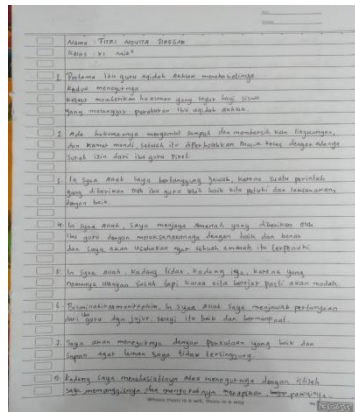 Nama : FITRI NOVITA SIREGAR
Kelas : XI MIA²
1. Pertama ibu guru aqidah akhlak menasehatinya
Kedua menegurnya
Ketiga memberikan hukuman yang tepat bagi siswa
yang melanggar peraturan ibu aqidah akhlak.
2. Ada hukumannya mengambil sampah dan membersih kan lingkungan,
dan kamar mandi, sebuah itu diperbolehkan masuk kelas dengan adanya
surat izin dari ibu guru piket.
3. In sya Allah saya bertanggung jawab, karena suatu perintah
yang diberikan oleh ibu guru lebih baik kita patuhi dan laksanakan,
dengan baik.
4. In sya Allah, saya menjaga amanah yang diberikan oleh
ibu guru dengan melaksanakannya dengan baik dan benar
dan saya akan usahakan agar sebuah amanah itu terpenuhi
5. In sya Allah, kadang tidak, kadang iya, karena yang
namanya ulangan susah tapi kalau kita belajar pasti akan mudah.
6. Bismillahirrahmanirrahim, In sya Allah saya menjawab pertanyaan
dari ibu guru dgn jujur, selagi itu baik dan bermanfaat.
7. Saya akan menegurnya dengan perkataan yang baik dan
sopan agar teman saya tidak tersinggung.
8. Kadang saya menasehatinya atau menegurnya dengan
saya memanggilnya dan menyuruhnya merapikan